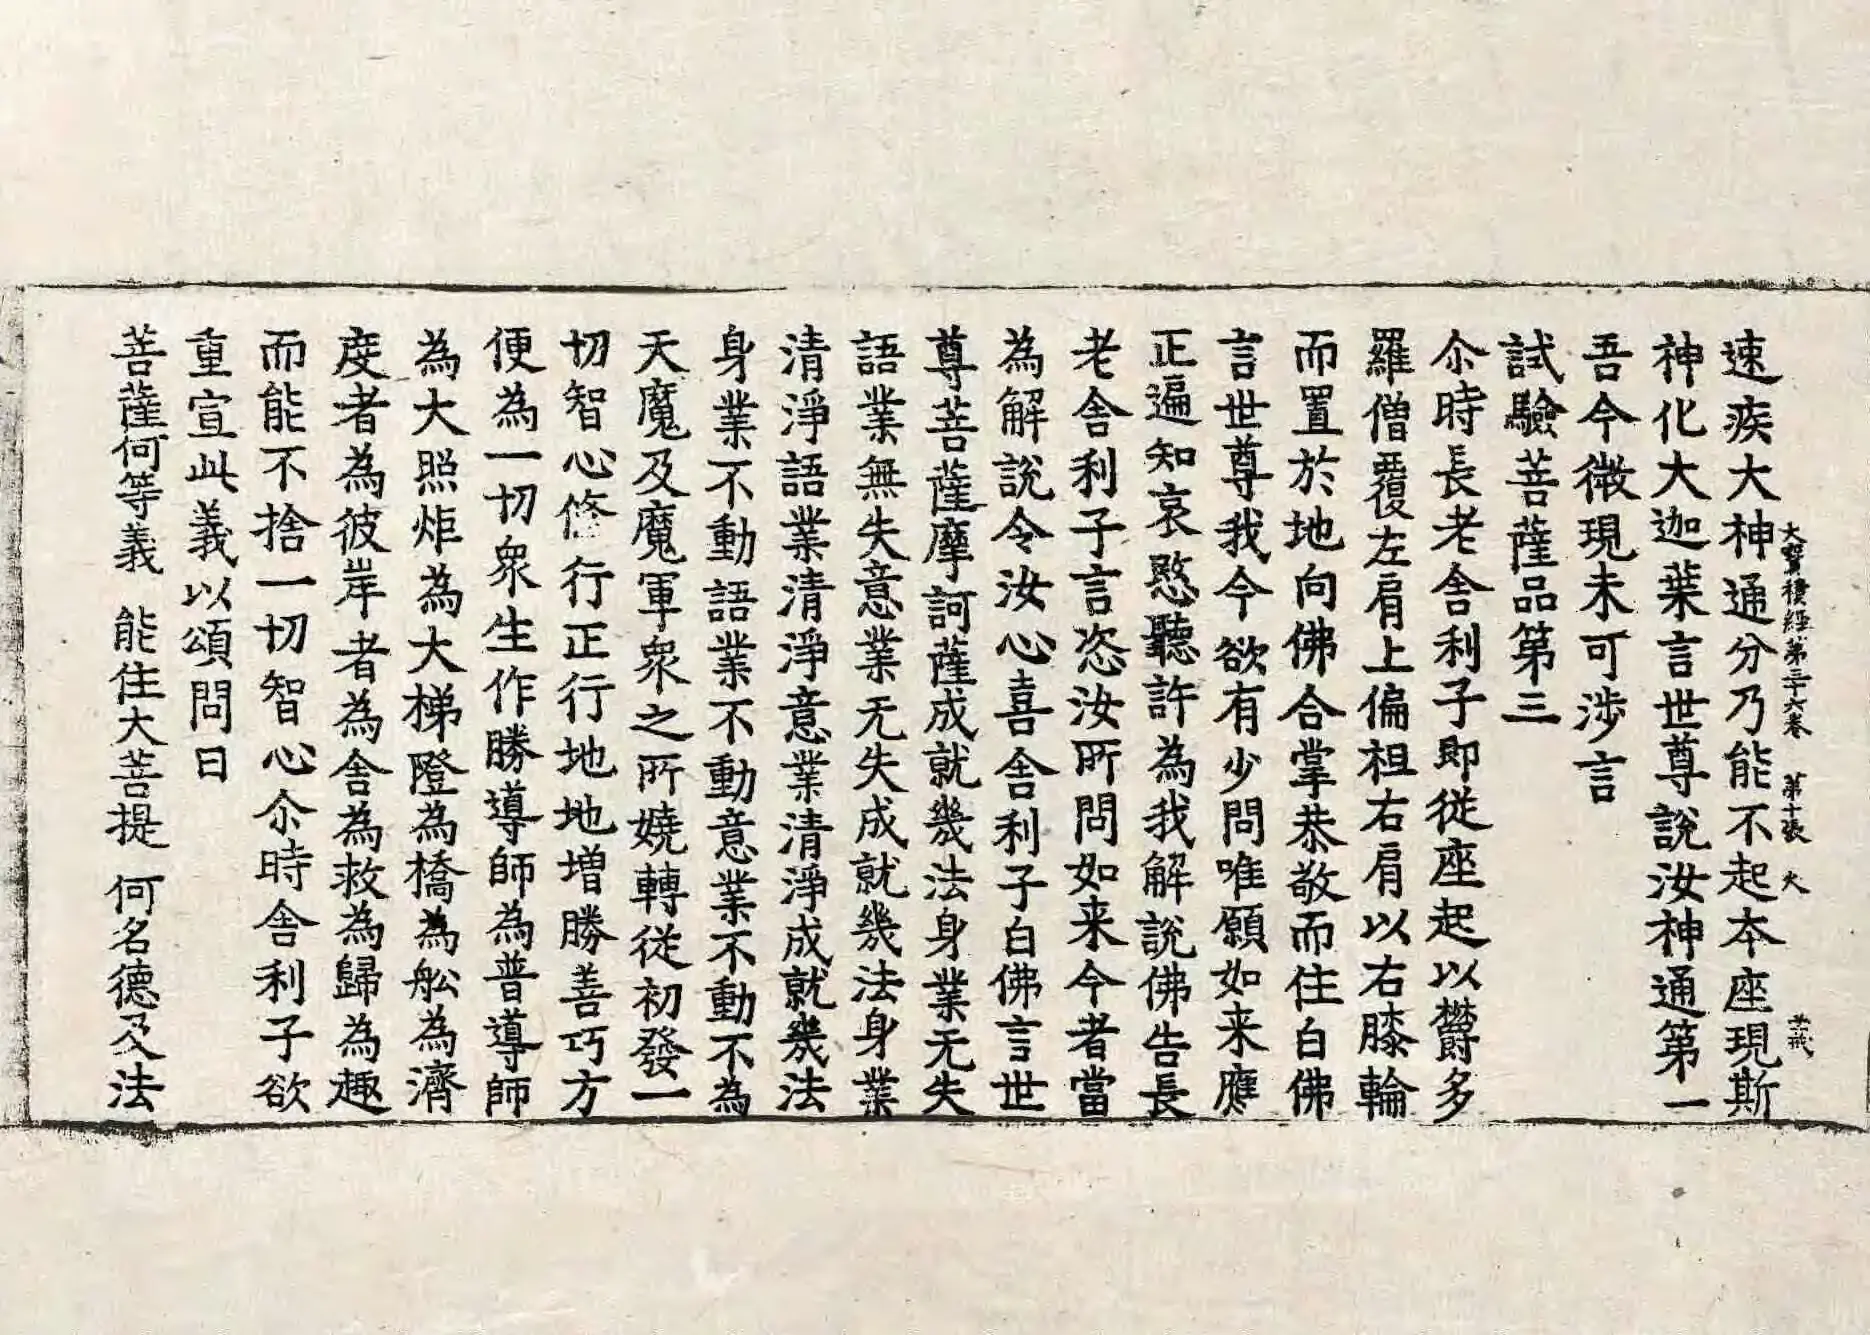 大寶積經第三十六卷　第十張　火
速疾大神通分乃能不起夲座現斯
神化大迦葉言世尊說汝神通第一
吾今微現未可涉言
試驗菩薩品第三
尒時長老舍利子即從座起以欝多
羅僧覆左肩上偏袒右肩以右膝輪
而置於地向佛合掌恭敬而住白佛
言世尊我今欲有少問唯願如来應
正遍知哀愍聽許為我解說佛告長
老舍利子言恣汝所問如来今者當
為解說令汝心喜舍利子白佛言世
尊菩薩摩訶薩成就幾法身業无失
語業無失意業无失成就幾法身業
清淨語業清淨意業清淨成就幾法
身業不動語業不動意業不動不為
天魔及魔軍衆之所嬈轉從初發一
切智心修行正行地地增勝善巧方
便為一切衆生作勝導師為普導師
為大照炬為大梯隥為橋為舩為濟
度者為彼岸者為舍為救為歸為趣
而能不捨一切智心尒時舍利子欲
重宣此義以頌問曰
菩薩何等義　能住大菩提　何名德及法